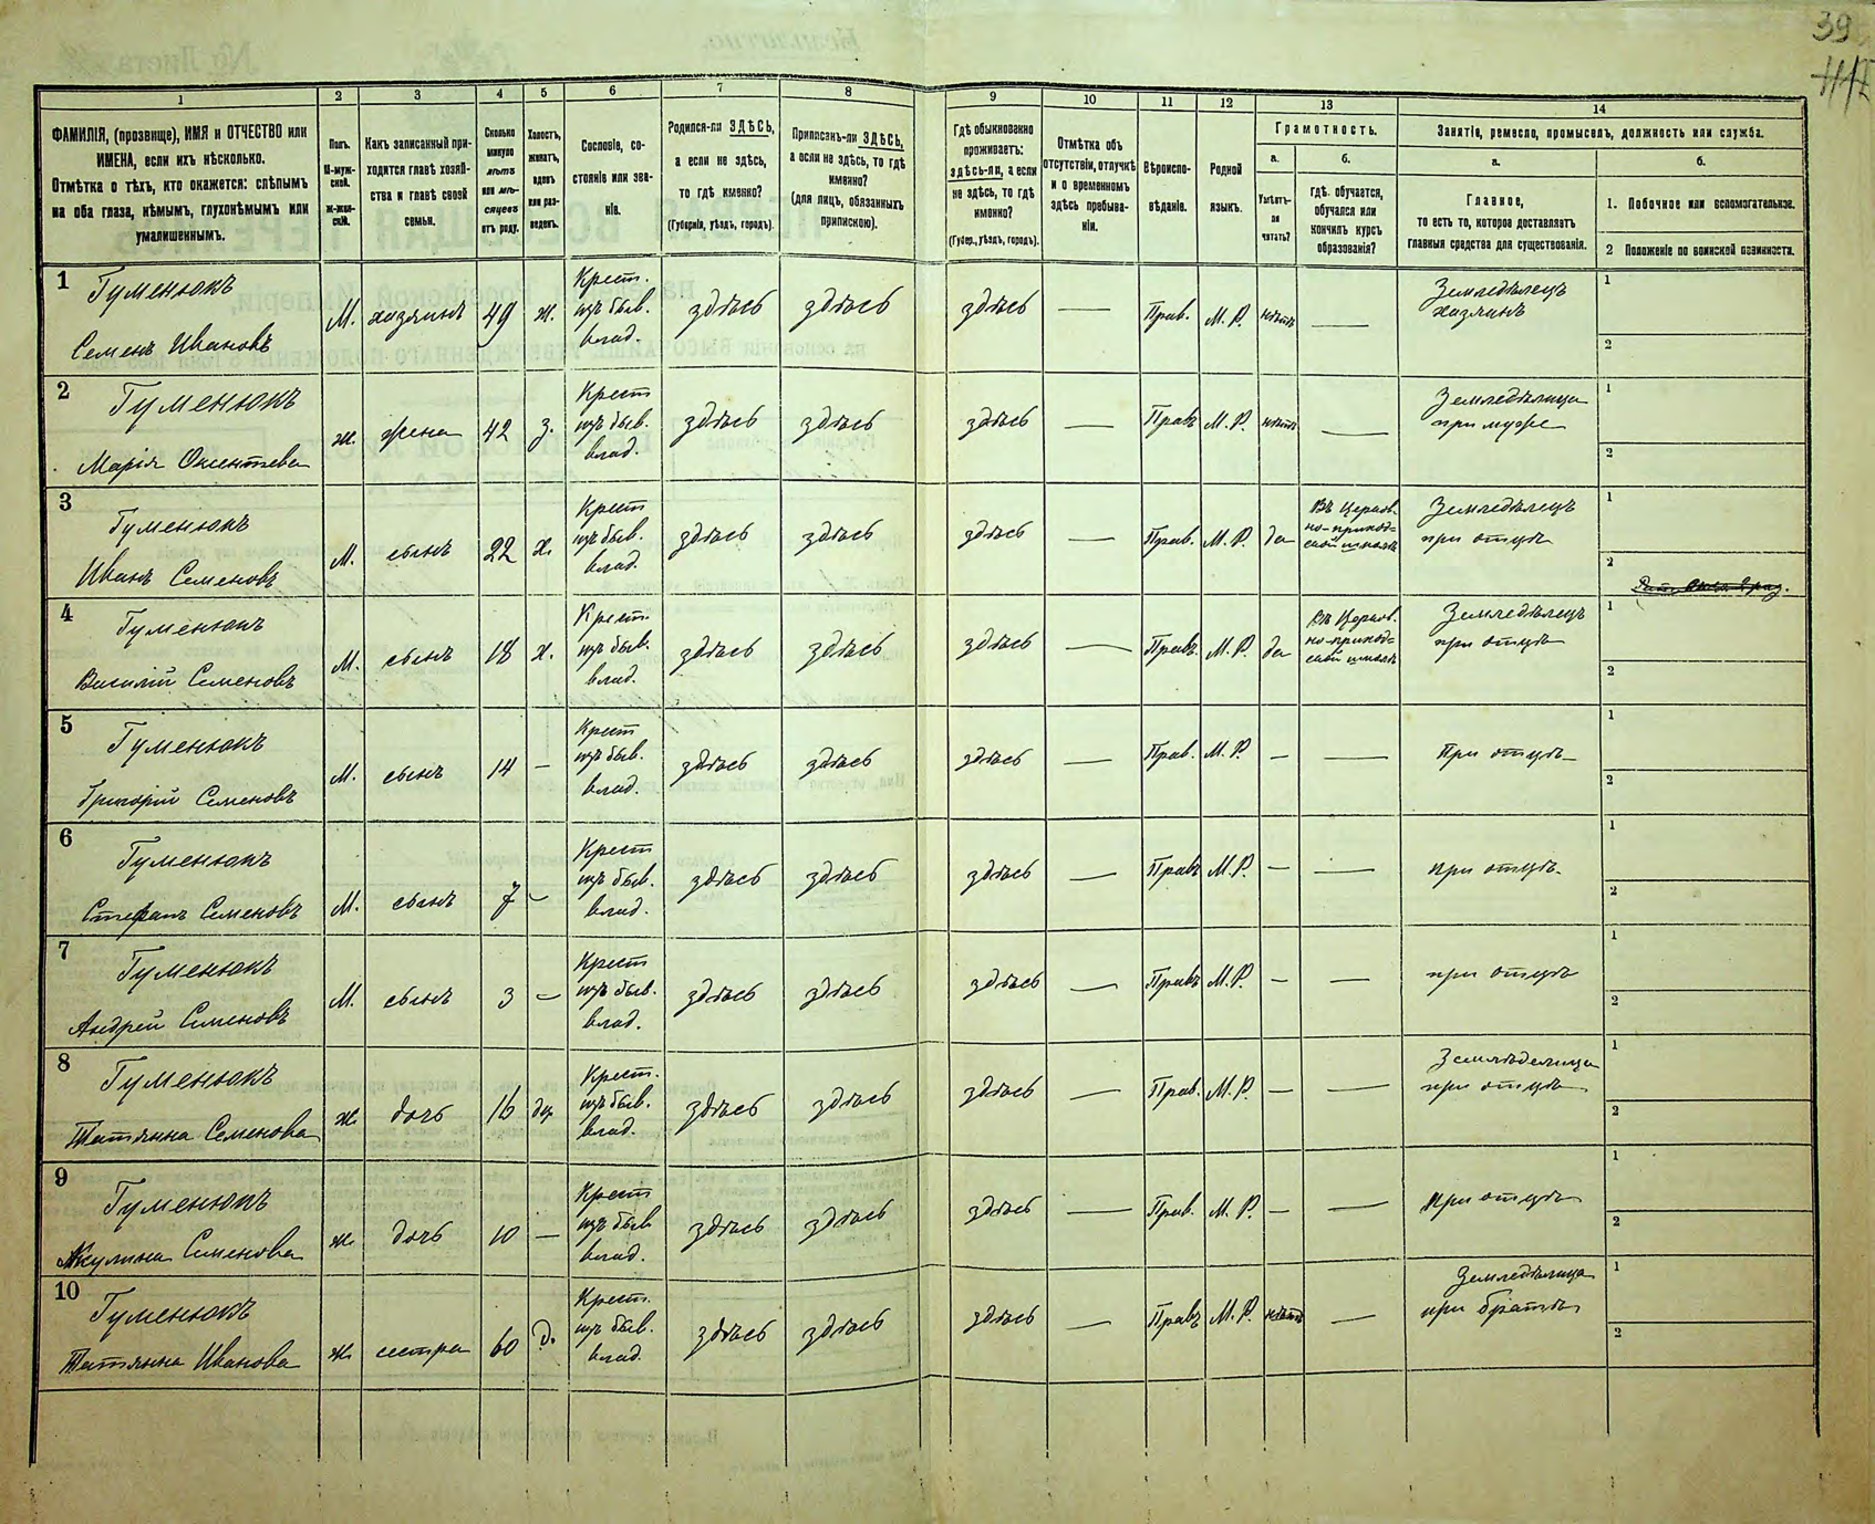 39
1 2 3 4 5 6 7 8 9 10 11 12 13 14
ФАМИЛІЯ, (прозвище), ИМЯ и ОТЧЕСТВО или
ИМЕНА, если ихъ нѣсколько.
Отмѣтка о тѣхъ, кто окажется: слѣпымъ
на оба глаза, нѣмымъ, глухонѣмымъ или
умалишеннымъ.
Полъ.
М-муж-
ской.
Ж-жен-
скій.
Какъ записанный при-
ходится главѣ хозяй-
ства и главѣ своей
семьи.
Сколько
минуло
лѣтъ
или мѣ-
сяцевъ
отъ роду.
Холостъ,
женатъ,
вдовъ
или раз-
веденъ.
Сословіе, со-
стояніе или зва-
ніе.
Родился-ли ЗДѢСЬ,
а если не здѣсь,
то гдѣ именно?
(Губернія, уѣздъ, городъ).
Приписанъ-ли ЗДѢСЬ,
а если не здѣсь, то гдѣ
именно?
(для лицъ, обязанныхъ
припискою).
Гдѣ обыкновенно
проживаетъ:
здѣсь-ли, а если
не здѣсь, то гдѣ
именно?
(Губер., уѣздъ, городъ).
Отмѣтка объ
отсутствіи, отлучкѣ
и о временномъ
здѣсь пребыва-
ніи.
Вѣроиспо-
вѣданіе.
Родной
языкъ.
Грамотность.
а.
Умѣетъ-
ли
читать?
б.
гдѣ обучается,
обучался или
кончилъ курсъ
образованія?
Занятіе, ремесло, промыселъ, должность или служба.
а.
Главное,
то есть то, которое доставляетъ
главныя средства для существованія.
б.
1. Побочное или вспомогательное.
2 Положеніе по воинской повинности.
1
Гуменюкъ
Семенъ Ивановъ
М.
хозяинъ
49
ж.
Крест.
изъ быв.
влад.
здѣсь
здѣсь
здѣсь
—
Прав.
М.Р.
нѣтъ
—
Земледѣлецъ
хозяинъ
1
2
2
Гуменюкъ
Марія Оксентьева
ж.
жена
42
з.
Крест
изъ быв.
влад.
здѣсь
здѣсь
здѣсь
—
Правъ
М.Р.
нѣтъ
—
Земледѣлица
при мужѣ
1
2
3
Гуменюкъ
Иванъ Семеновъ
М.
сынъ
22
х.
Крест
изъ быв.
влад.
здѣсь
здѣсь
здѣсь
—
Прав.
М.Р.
да
Въ Церков-
но-приход-
ской школѣ
Земледѣлецъ
при отцѣ
1
2
4
Гуменюкъ
Василій Семеновъ
М.
сынъ
18
х.
Крест.
изъ быв.
влад.
здѣсь
здѣсь
здѣсь
—
Правъ
М.Р.
да
Въ Церков-
но-приход-
ской школѣ
Земледѣлецъ
при отцѣ
1
2
5
Гуменюкъ
Григорій Семеновъ
М.
сынъ
14
—
Крест
изъ быв.
влад.
здѣсь
здѣсь
здѣсь
—
Прав.
М.Р.
—
—
При отцѣ
1
2
6
Гуменюкъ
Стефанъ Семеновъ
М.
сынъ
7
—
Крест
изъ быв.
влад.
здѣсь
здѣсь
здѣсь
—
Правъ
М.Р.
—
—
при отцѣ
1
2
7
Гуменюкъ
Андрей Семеновъ
М.
сынъ
3
—
Крест
изъ быв.
влад.
здѣсь
здѣсь
здѣсь
—
Правъ
М.Р.
—
—
при отцѣ
1
2
8
Гуменюкъ
Татьянна Семенова
ж.
дочь
16
дѣ
Крест.
изъ быв.
влад.
здѣсь
здѣсь
здѣсь
—
Прав.
М.Р.
—
—
Землѣделица
при отцѣ
1
2
9
Гуменюкъ
Акулина Семенова
ж.
дочь
10
—
Крест
изъ быв
влад.
здѣсь
здѣсь
здѣсь
—
Прав.
М.Р.
—
—
при отцѣ
1
2
10
Гуменюкъ
Татьянна Иванова
ж.
сестра
60
д.
Крест.
изъ быв.
влад.
здѣсь
здѣсь
здѣсь
—
Правъ
М.Р.
нѣтъ
—
Земледѣлица
при братѣ
1
2